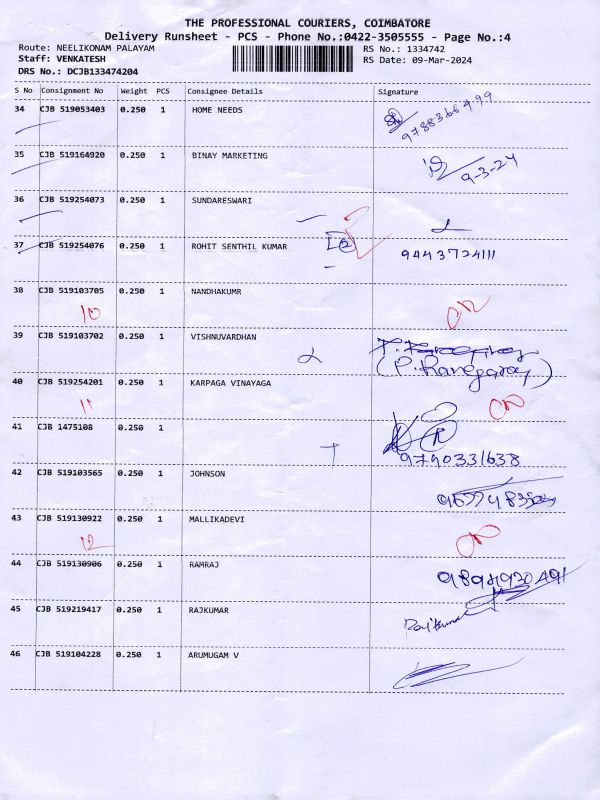 THE PROFESSIONAL COURIERS, COIMBATORE
Delivery Runsheet - PCS - Phone No.:0422-3505555 - Page No.:4
Route: NEELIKONAM PALAYAM RS No.: 1334742
Staff: VENKATESH RS Date: 09-Mar-2024
DRS No.: DCJB133474204
S No Consignment No Weight PCS Consignee Details Signature
34 CJB 519053403 0.250 1 HOME NEEDS
35 CJB 519164920 0.250 1 BINAY MARKETING
9-3-24
36 CJB 519254073 0.250 1 SUNDARESWARI
37 CJB 519254076 0.250 1 ROHIT SENTHIL KUMAR 2 9443724111
38 CJB 519103705 0.250 1 NANDHAKUMR
10
39 CJB 519103702 0.250 1 VISHNUVARDHAN
40 CJB 519254201 0.250 1 KARPAGA VINAYAGA
11
41 CJB 1475108 0.250 1
9790331638
42 CJB 519103565 0.250 1 JOHNSON
43 CJB 519130922 0.250 1 MALLIKADEVI
12
44 CJB 519130906 0.250 1 RAMRAJ
45 CJB 519219417 0.250 1 RAJKUMAR
Rajkumar
46 CJB 519104228 0.250 1 ARUMUGAM V